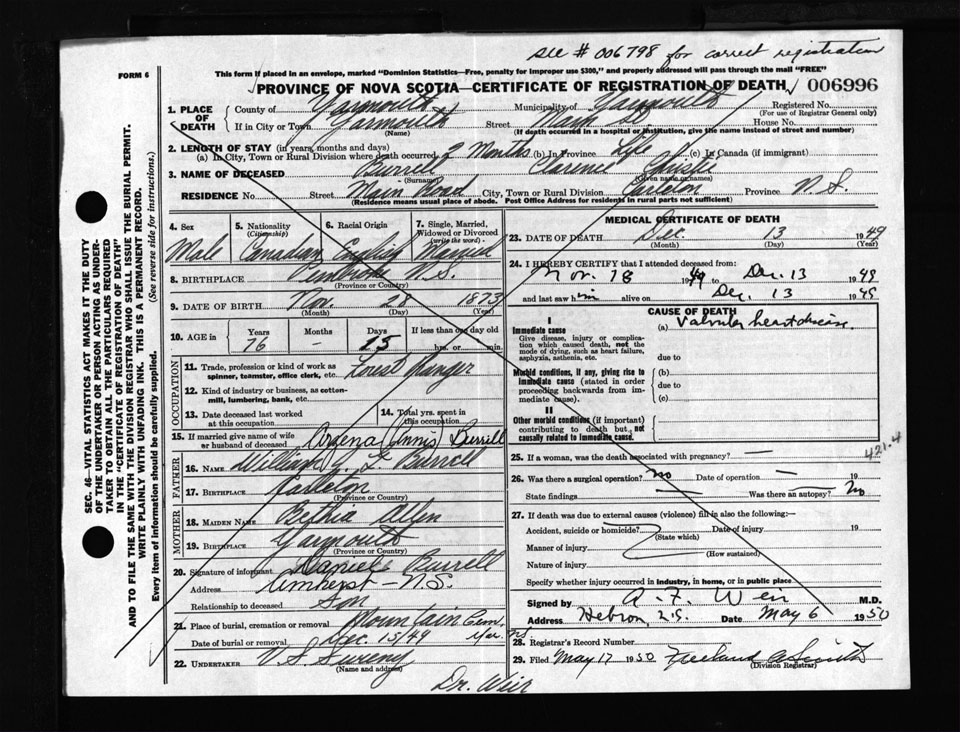 see # 006798 for correct registration
FORM 6
This form if placed in an envelope, marked "Dominion Statistics—Free, penalty for improper use $300," and properly addressed will pass through the mail "FREE"
PROVINCE OF NOVA SCOTIA—CERTIFICATE OF REGISTRATION OF DEATH 006996
1. PLACE OF DEATH County of Yarmouth Municipality of Yarmouth Registered No.
(For use of Registrar General only)
If in City or Town Yarmouth Street Main St House No.
(Name) (If death occurred in a hospital or institution, give the name instead of street and number)
2. LENGTH OF STAY (in years, months and days)
(a) In City, Town or Rural Division where death occurred 2 Months (b) In Province Life (c) In Canada (if immigrant)
3. NAME OF DECEASED Burrell Clarence
(Surname) (Given name or names)
RESIDENCE No. Street Main Road City, Town or Rural Division Carleton Province N.S.
(Residence means usual place of abode. Post Office Address for residents in rural parts not sufficient)
4. Sex 5. Nationality (Citizenship) 6. Racial Origin 7. Single, Married, Widowed or Divorced (write the word)
Male Canadian English Married
8. BIRTHPLACE Pembroke N.S.
(Province or Country)
9. DATE OF BIRTH Nov. 28 1873
(Month) (Day) (Year)
10. AGE in Years Months Days If less than one day old
76 - 15 hrs. or min.
OCCUPATION
11. Trade, profession or kind of work as spinner, teamster, office clerk, etc. Forest Ranger
12. Kind of industry or business, as cotton-mill, lumbering, bank, etc.
13. Date deceased last worked at this occupation
14. Total yrs. spent in this occupation
15. If married give name of wife or husband of deceased (Annis) Burrell
FATHER
16. NAME William Burrell
17. BIRTHPLACE Carleton
(Province or Country)
MOTHER
18. MAIDEN NAME Bethia Allen
19. BIRTHPLACE Yarmouth
(Province or Country)
20. Signature of informant Daniel Burrell
Address Amherst - N.S.
Relationship to deceased Son
21. Place of burial, cremation or removal Mountain Cem. Yar. N.S.
Date of burial or removal Dec. 15/49
22. UNDERTAKER V. S. Sweeny
(Name and address)
Dr. Weir
MEDICAL CERTIFICATE OF DEATH
23. DATE OF DEATH Dec. 13 1949
(Month) (Day) (Year)
24. I HEREBY CERTIFY that I attended deceased from:
Nov. 18 1949 to Dec. 13 1949
and last saw him alive on Dec. 13 1949
CAUSE OF DEATH
I
Immediate cause (a) Valvular heart disease
Give disease, injury or complication which caused death, not the mode of dying, such as heart failure, asphyxia, asthenia, etc.
due to
Morbid conditions, if any, giving rise to immediate cause (stated in order proceeding backwards from immediate cause).
(b)
due to
(c)
II
Other morbid conditions (if important) contributing to death but not causally related to immediate cause.
421.4
25. If a woman, was the death associated with pregnancy? —
26. Was there a surgical operation? No Date of operation —
State findings Was there an autopsy? No
27. If death was due to external causes (violence) fill in also the following:—
Accident, suicide or homicide? Date of injury 19
(State which)
Manner of injury
(How sustained)
Nature of injury
Specify whether injury occurred in industry, in home, or in public place
Signed by A. F. Weir M.D.
Address Hebron, N.S. Date May 6 1950
28. Registrar's Record Number
29. Filed May 17 1950 Freeland A Smith
(Division Registrar)
SEC. 46—VITAL STATISTICS ACT MAKES IT THE DUTY
OF THE UNDERTAKER OR PERSON ACTING AS UNDERTAKER TO OBTAIN ALL THE PARTICULARS REQUIRED
IN THE "CERTIFICATE OF REGISTRATION OF DEATH"
AND TO FILE THE SAME WITH THE DIVISION REGISTRAR WHO SHALL ISSUE THE BURIAL PERMIT.
WRITE PLAINLY WITH UNFADING INK. THIS IS A PERMANENT RECORD.
Every item of information should be carefully supplied. (See reverse side for instructions.)